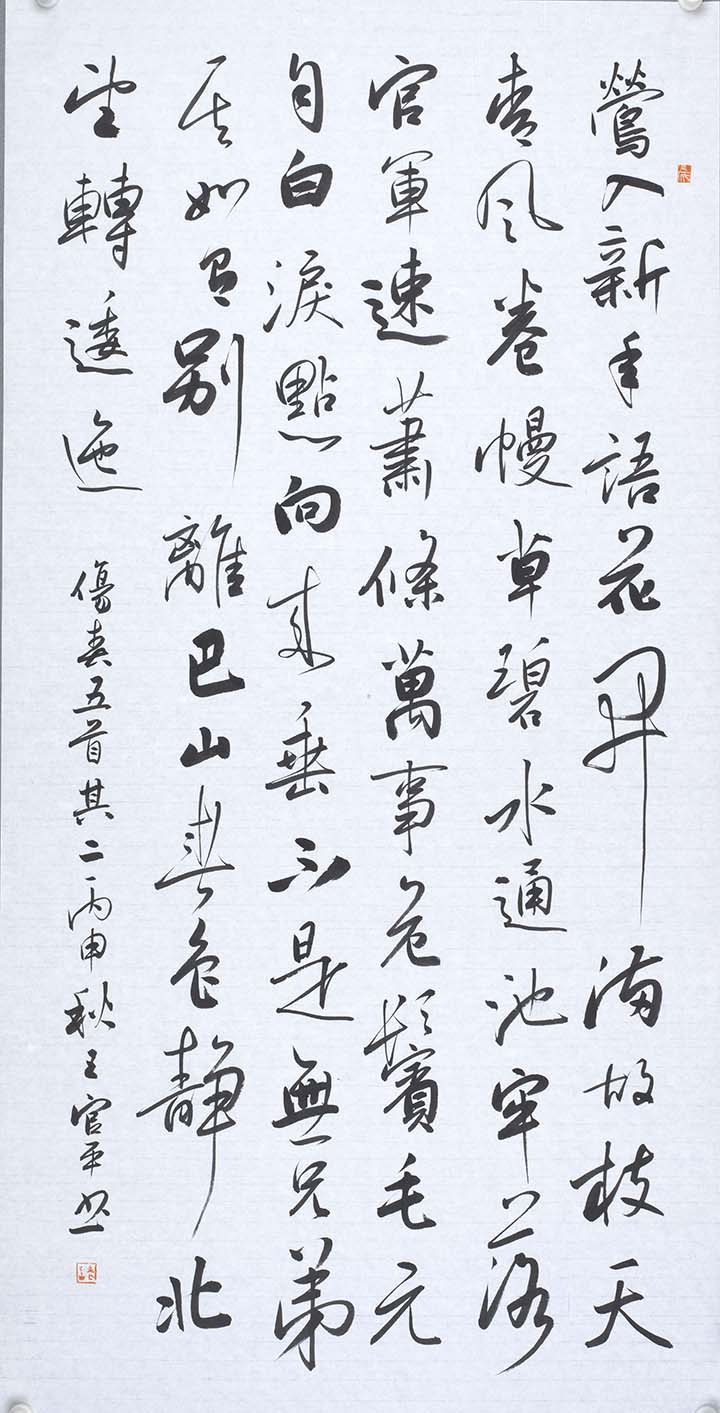 鶯入新年語花開滿故枝天
青風卷幔草碧水通池牢落
官軍速蕭條萬事危鬢毛元
自白淚點向來垂不是無兄弟
其如有別離巴山春色靜北
望轉逶迤
傷春五首其二丙申秋王官平書